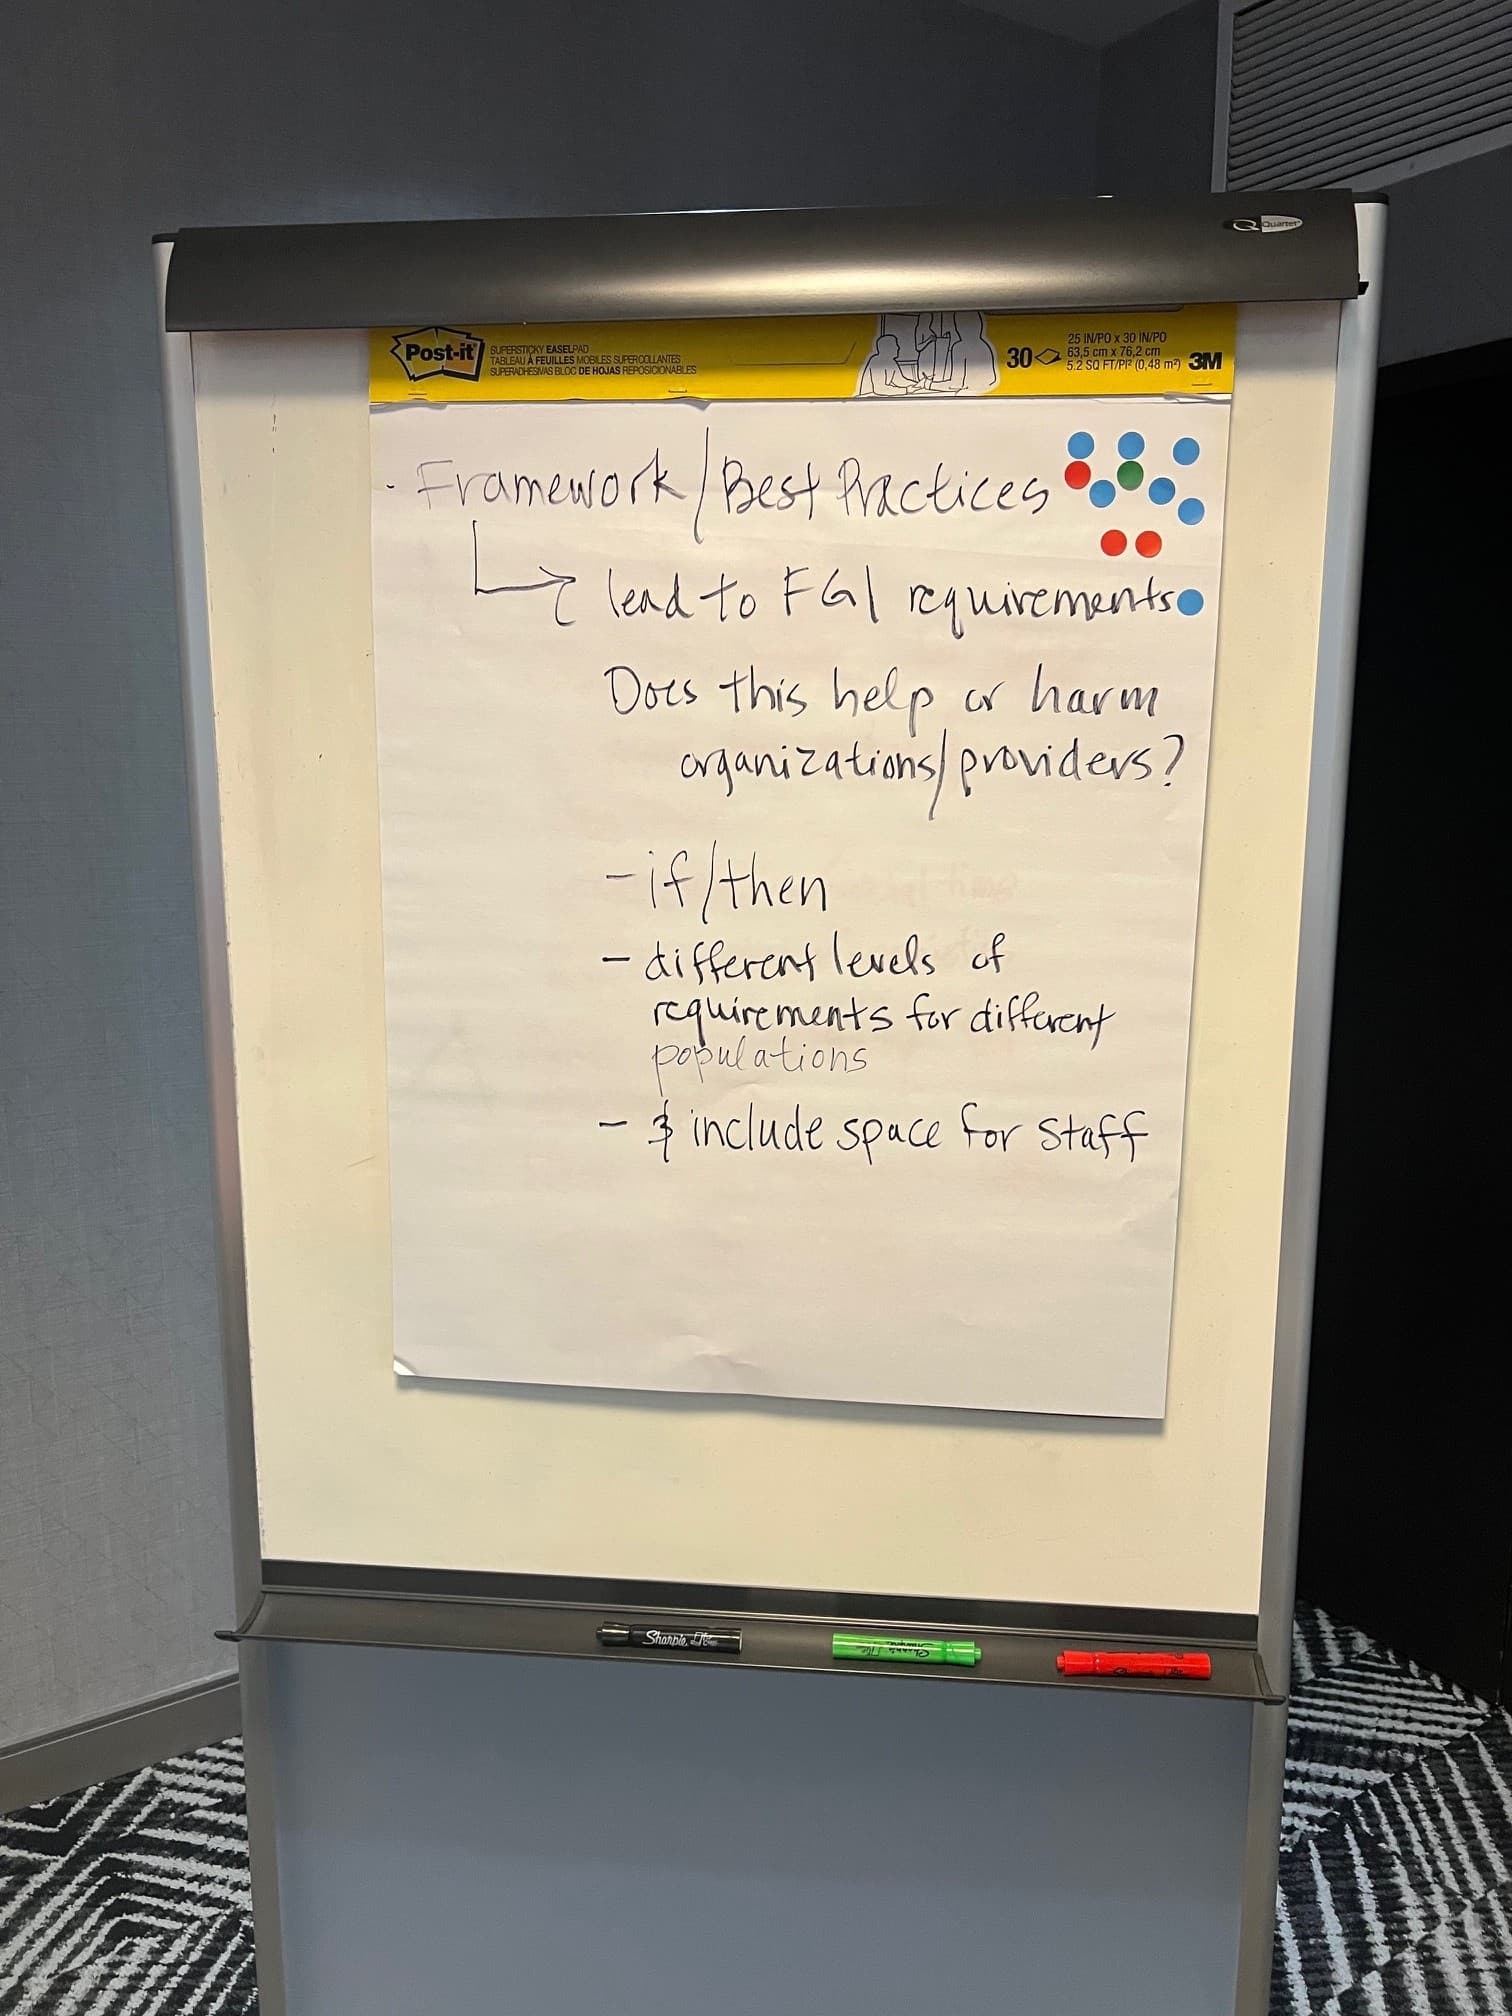 Quartet
Post-it
SUPERSTICKY EASEL PAD
TABLEAU À FEUILLES MOBILES SUPER COLLANTES
SUPERADHESIVAS BLOC DE HOJAS REPOSICIONABLES
30
25 IN/PO x 30 IN/PO
63,5 cm x 76,2 cm
5.2 SQ FT/PI² (0,48 m²)
3M
· Framework/Best Practices
lead to FGI requirements
Does this help or harm
organizations/providers?
- if/then
- different levels of
requirements for different
populations
- & include space for staff
Sharpie
Sharpie